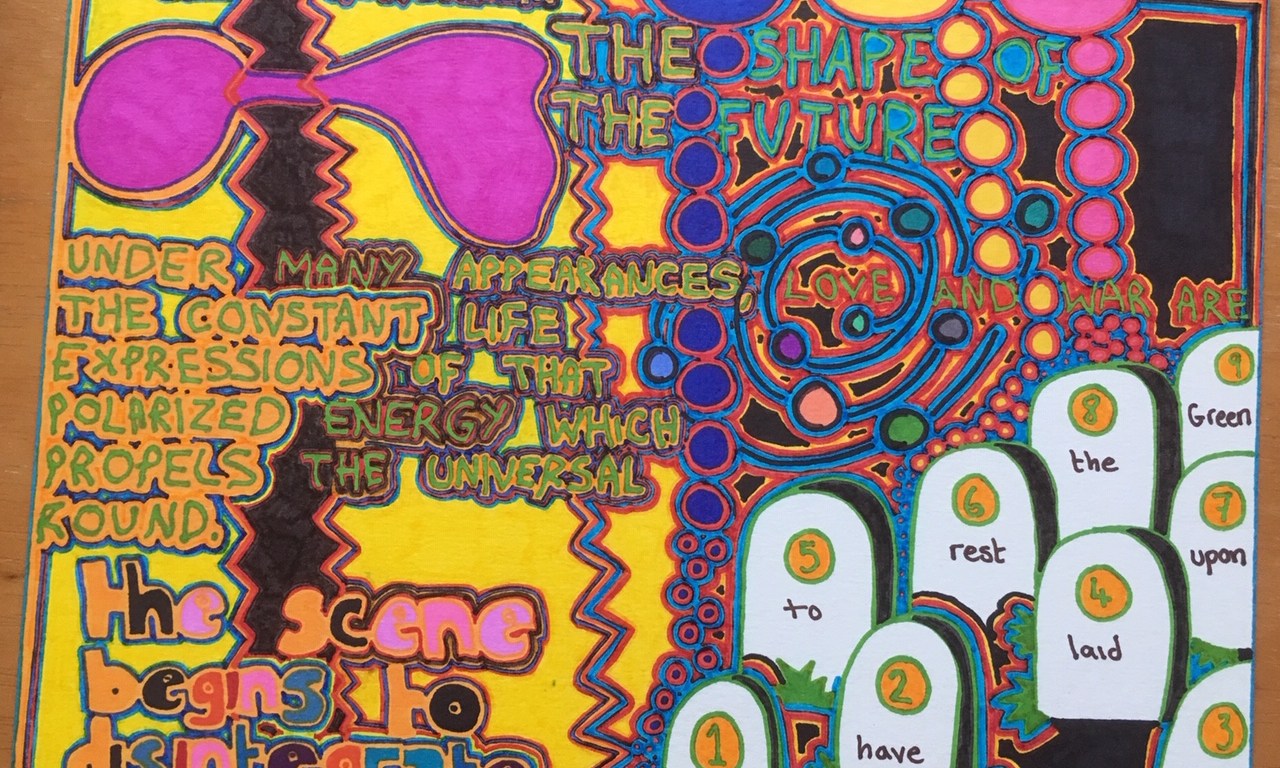 THE SHAPE OF
THE FUTURE
UNDER MANY APPEARANCES, LOVE AND WAR ARE
THE CONSTANT LIFE
EXPRESSIONS OF THAT
POLARIZED ENERGY WHICH
PROPELS THE UNIVERSAL
ROUND.
the scene
begins to
disintegrate
9
Green
8
the
7
upon
6
rest
5
to
4
laid
3
2
have
1